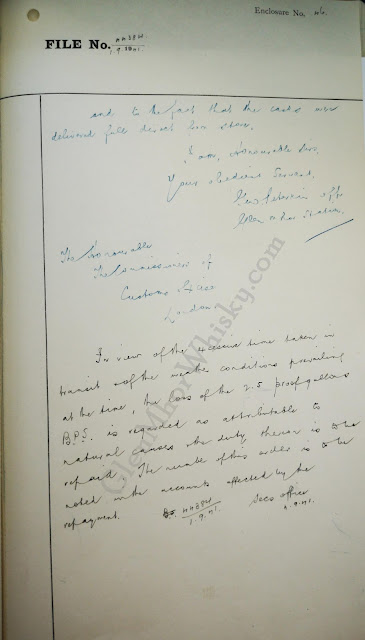 Enclosure No. 46.
FILE No.
1.9.1941.
and to the fact that the casks were
delivered full direct from store.
I am, Honourable Sirs,
Your obedient Servant,
Glen Mhor Station.
The Honourable
The Commissioners of
Customs & Excise
London
In view of the excessive time taken in
transit & of the weather conditions prevailing
at the time, the loss of the 2.5 proof gallons
B.P.S. is regarded as attributable to
natural causes & the duty thereon is to be
repaid. The number of this order is to be
noted in the accounts affected by the
repayment.
1.9.41.
Secs office
1.9.41.
GlenMhorWhisky.com